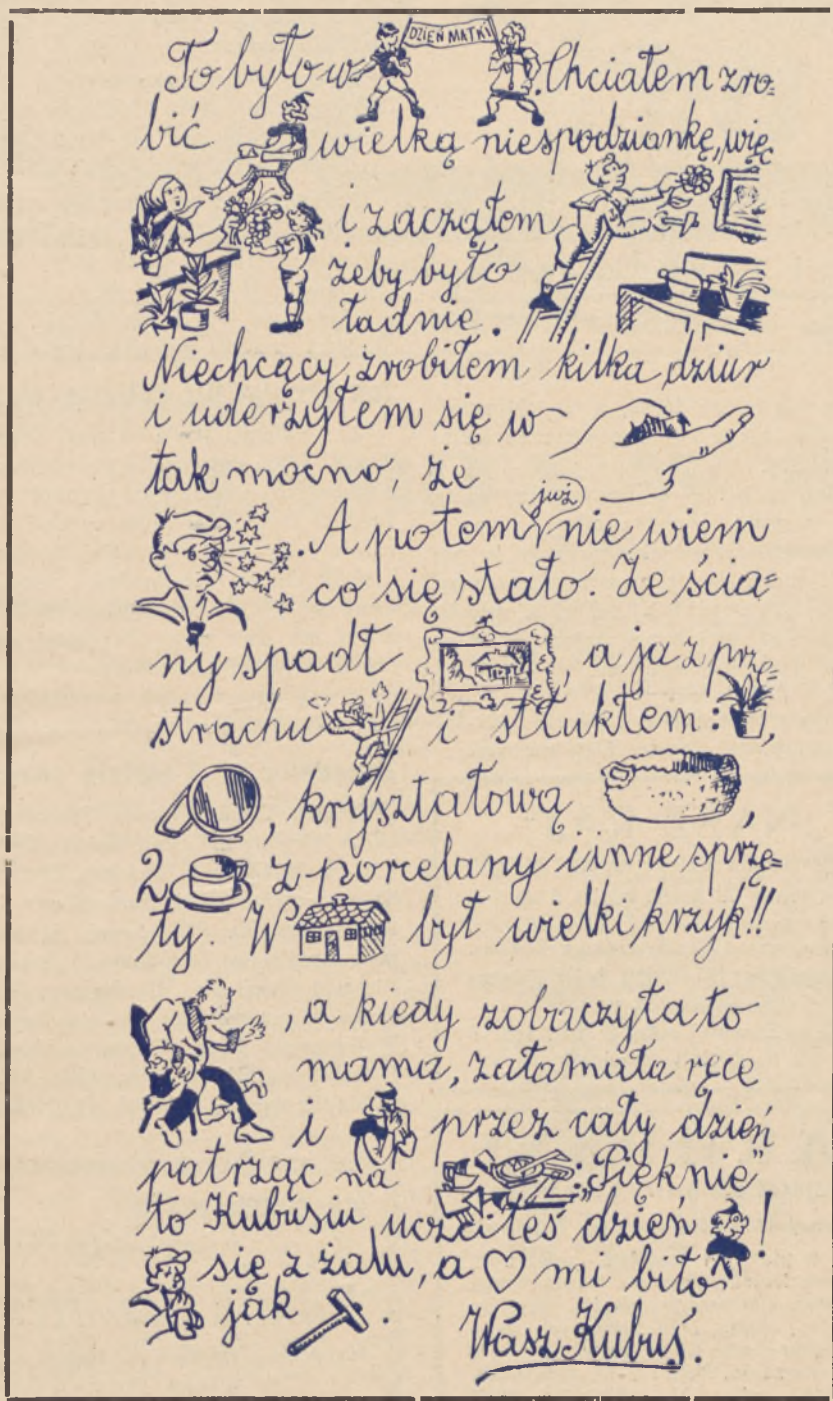 DZIEŃ MATKI
To było w . Chciałem zro=
bić wielką niespodziankę, więc
i zacząłem
żeby było
ładnie.
Niechcący zrobiłem kilka dziur
i uderzyłem się w
tak mocno, że
już
. A potem nie wiem
co się stało. Ze ścia=
ny spadł , a ja z prze=
strachu i stłukłem: ,
, kryształową ,
2 z porcelany i inne sprzę=
ty. W był wielki krzyk!!
, a kiedy zobaczyła to
mama, załamała ręce
i przez cały dzień
patrząc na : „Pięknie"
to Kubusiu uczciłeś dzień !
się z żalu, a ♡ mi biło
jak .
Wasz Kubuś.